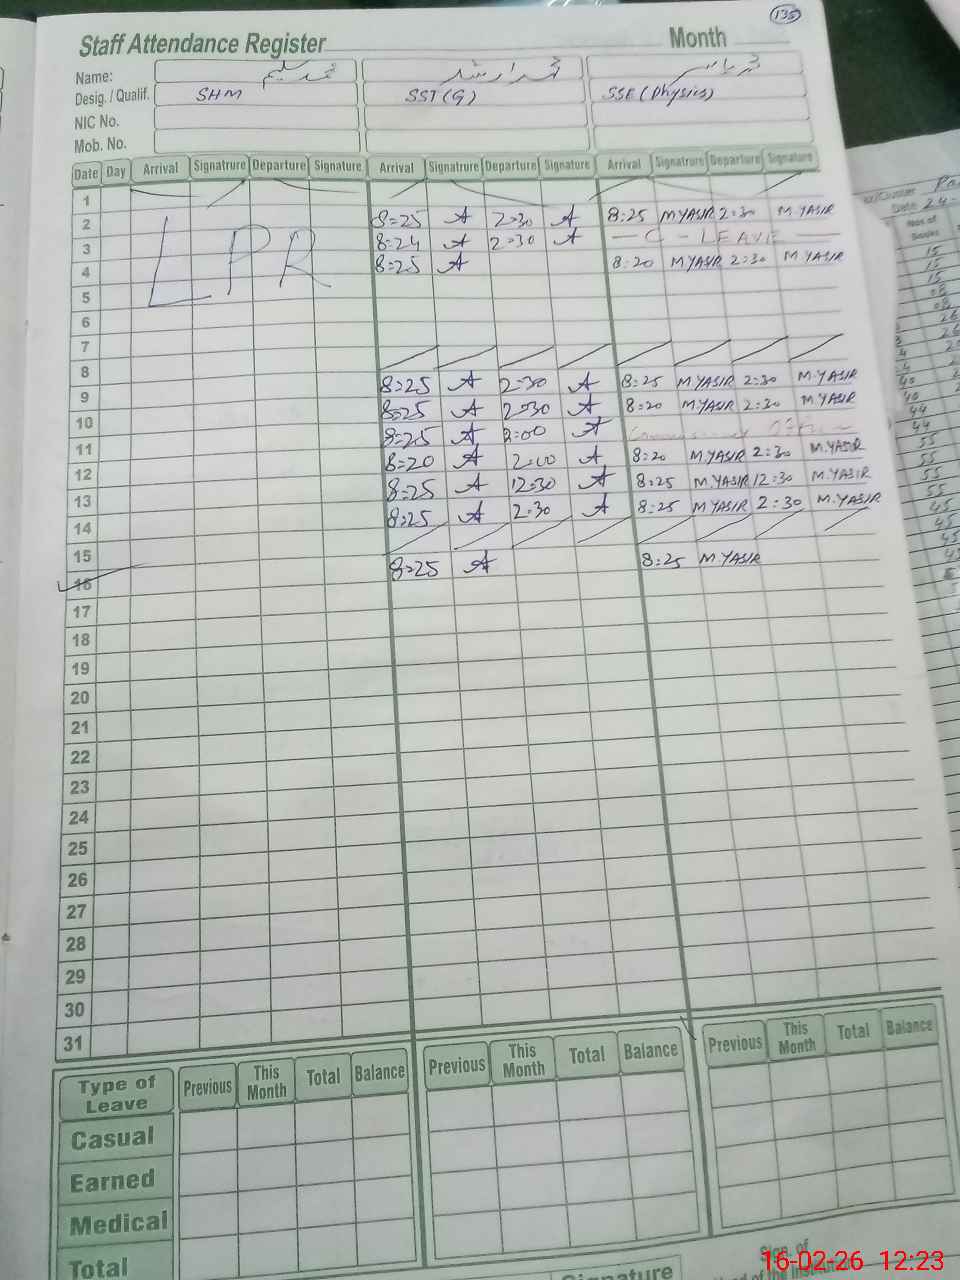 135
Staff Attendance Register Month
Name: محمد سلیم محمد ارشد محمد یاسر
Desig. / Qualif. SHM SST (G) SSE (Physics)
NIC No.
Mob. No.
Date Day Arrival Signatrure Departure Signature Arrival Signatrure Departure Signature Arrival Signatrure Departure Signature
1
2 8:25 A 2:30 A 8:25 M YASIR 2:30 M. YASIR
3 8:24 A 2:30 A — C - LEAVE —
4 8:25 A 8:20 M YASIR 2:30 M YASIR
LPR
5
6
7
8
9 8:25 A 2:30 A 8:25 M YASIR 2:30 M. YASIR
10 8:25 A 2:30 A 8:20 M YASIR 2:30 M. YASIR
11 8:25 A 2:00 A
12 8:20 A 2:00 A 8:20 M. YASIR 2:30 M. YASIR
13 8:25 A 12:30 A 8:25 M. YASIR 12:30 M. YASIR
14 8:25 A 2:30 A 8:25 M YASIR 2:30 M. YASIR
15
16 8:25 A 8:25 M. YASIR
17
18
19
20
21
22
23
24
25
26
27
28
29
30
31
Type of Leave Previous This Month Total Balance Previous This Month Total Balance Previous This Month Total Balance
Casual
Earned
Medical
Total
Signature
Sign. of
16-02-26 12:23